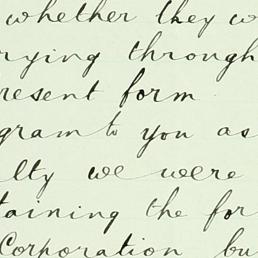 whether they w
rying through
resent form
gram to you as
lty we were
taining the for
Corporation bu